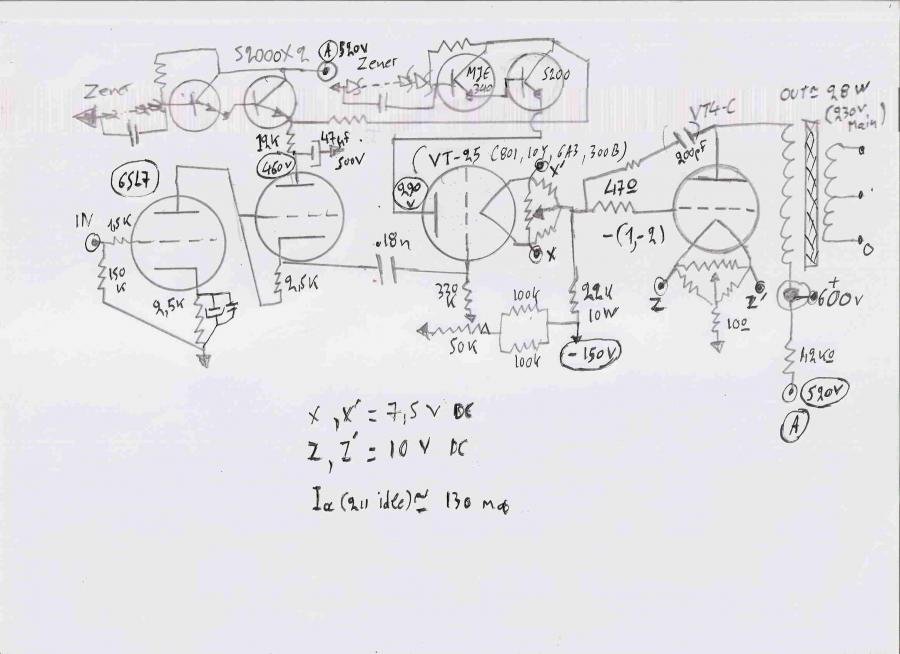 S2000X2
A 520V
Zener
Zener
MJE
340
S200
VT4-C
OUT≈ 28W
(230V
Main)
12K
47µF
500V
460V
200pF
6SL7
VT-25 (801, 10Y, 6A3, 300B)
X'
290
V
47Ω
IN
1,5K
-(1,-2)
150
K
2,5K
2,5K
.18n
X
Z
Z'
0
+
600V
330
K
22K
10W
100K
10Ω
50K
100K
-150V
42KΩ
520V
A
X, X' = 7,5 V DC
Z, Z' = 10 V DC
Ia (211 idle) ≈ 130 mA